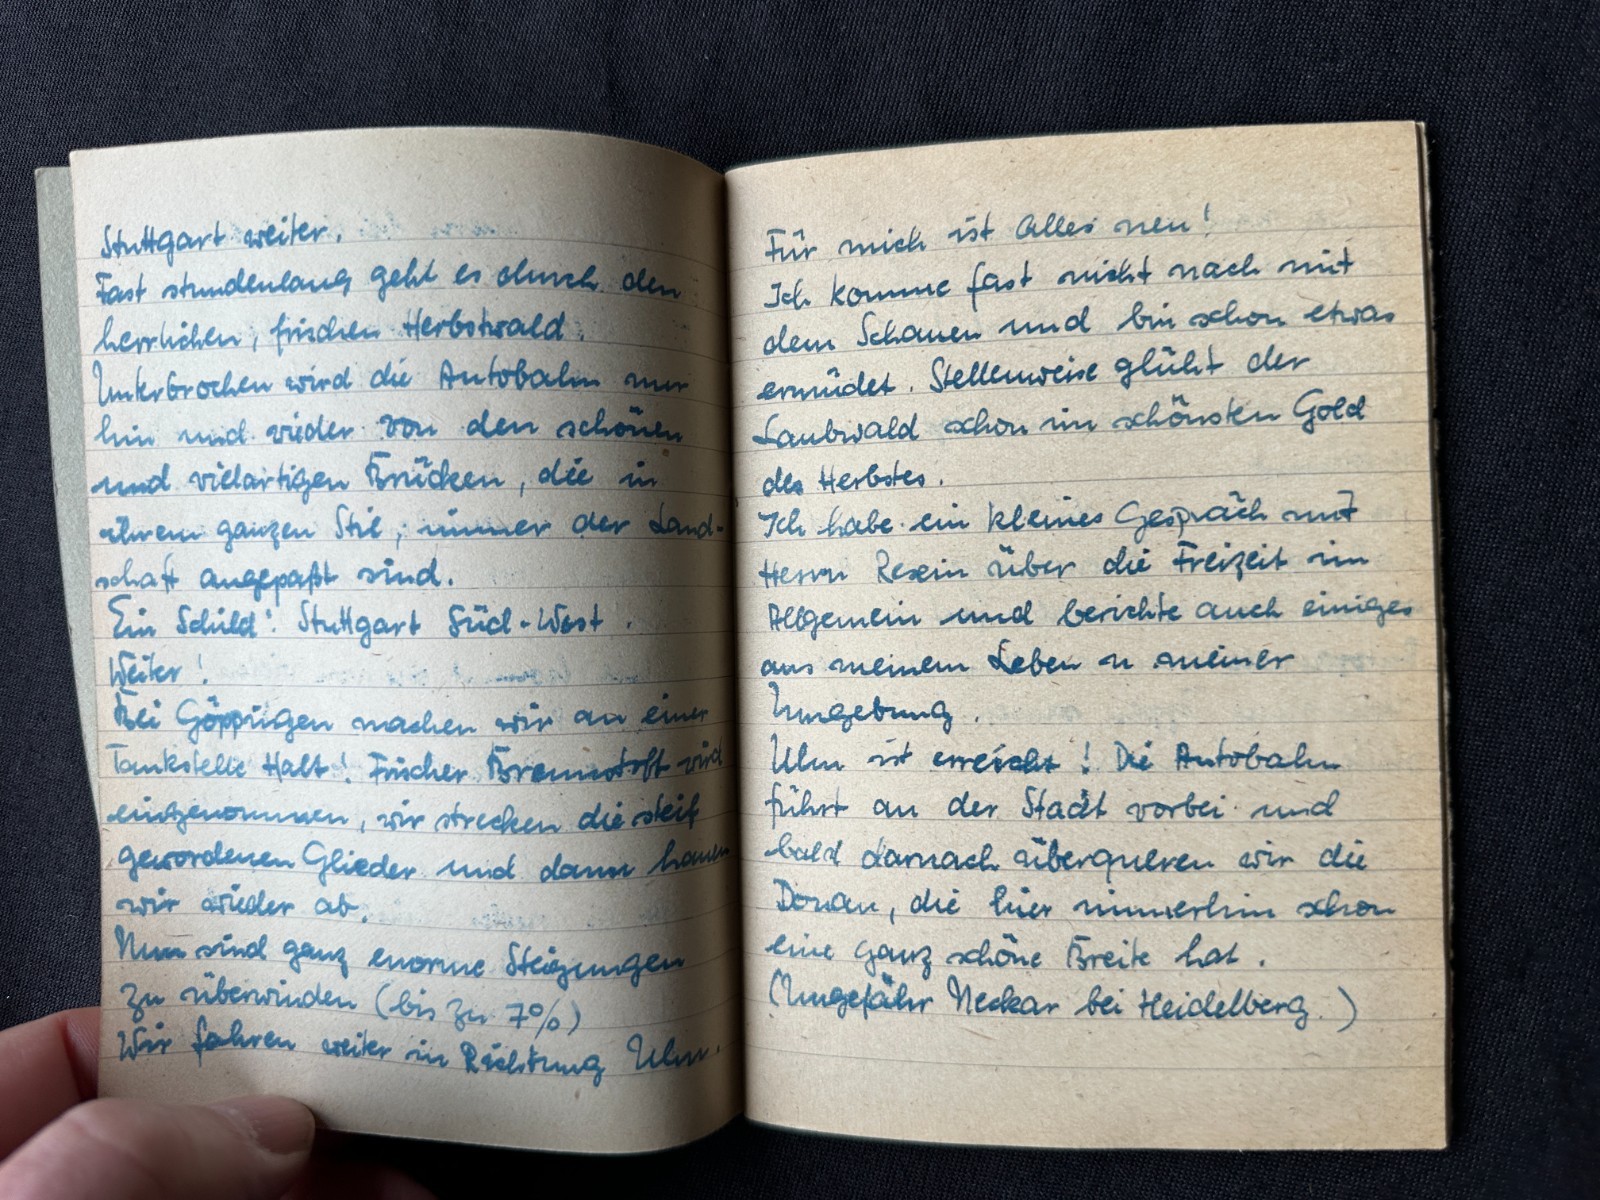 Stuttgart weiter.
Fast stundenlang geht es durch den
herrlichen, frischen Herbstwald.
Unterbrochen wird die Autobahn nur
hin und wieder von den schönen
und vielartigen Brücken, die in
ihrem ganzen Stil, immer der Land-
schaft angepaßt sind.
Ein Schild: Stuttgart Süd-West.
Weiter!
Bei Göppingen machen wir an einer
Tankstelle Halt! Frischer Brennstoff wird
eingenommen, wir strecken die steif
gewordenen Glieder und dann hauen
wir wieder ab.
Nun sind ganz enorme Steigungen
zu überwinden (bis zu 7%)
Wir fahren weiter in Richtung Ulm.
Für mich ist Alles neu!
Ich komme fast nicht nach mit
dem Schauen und bin schon etwas
ermüdet. Stellenweise glüht der
Laubwald schon im schönsten Gold
des Herbstes.
Ich habe ein kleines Gespräch mit
Herrn über die Freizeit im
Allgemein und berichte auch einiges
aus meinem Leben u meiner
Umgebung.
Ulm ist erreicht! Die Autobahn
führt an der Stadt vorbei und
bald darnach überqueren wir die
Donau, die hier immerhin schon
eine ganz schöne Breite hat.
(Ungefähr Neckar bei Heidelberg.)